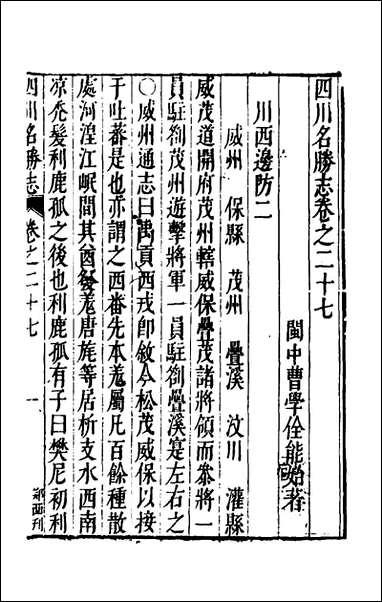 四川名勝志卷之二十七
閩中曹學佺能始著
川西邊防二
威州 保縣 茂州 疊溪 汶川 灌縣
威茂道開府茂州轄威保疊茂諸將領而叅將一
員駐劄茂州遊擊將軍一員駐劄疊溪寔左右之
○威州通志曰禹貢西戎卽敘今松茂威保以接
于吐蕃是也亦謂之西番先本羗屬凡百餘種散
處河湟江岷間其酋發羗唐旄等居析支水西南
凉禿髮利鹿孤之後也利鹿孤有子曰樊尼初利
四川名勝志
卷之二十七
一